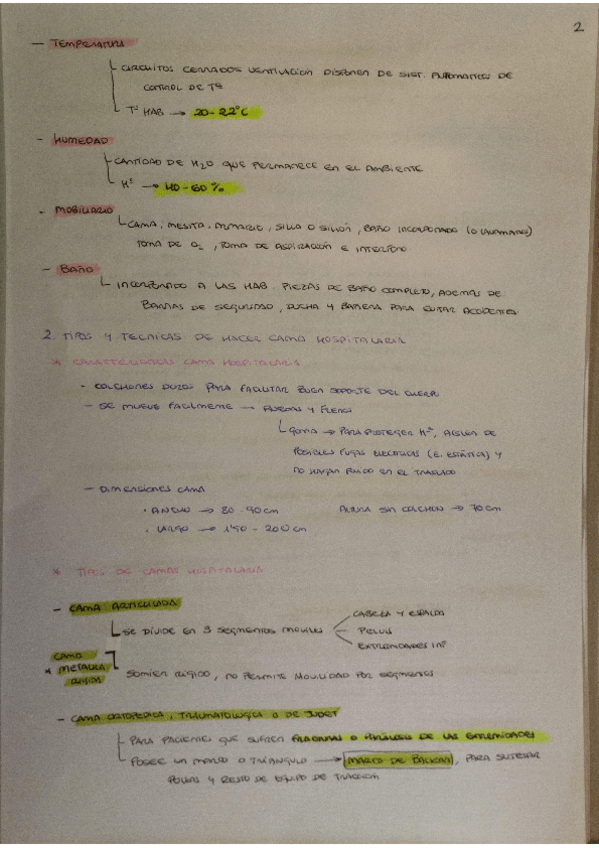 2
- TEMPERATURA
CIRCUITOS CERRADOS VENTILACION DISPONEN DE SIST. AUTOMATICOS DE
CONTROL DE Tª
Tª HAB → 20-22°C
- HUMEDAD
CANTIDAD DE H2O QUE PERMANECE EN EL AMBIENTE
Hª → 40-60%
- MOBILIARIO
CAMA, MESITA, ARMARIO, SILLA O SILLON, BAÑO INCORPORADO (O LAVAMANOS)
TOMA DE O2, TOMA DE ASPIRACION E INTERFONO
- BAÑO
INCORPORADO A LAS HAB. PIEZAS DE BAÑO COMPLETO, ADEMAS DE
BARRAS DE SEGURIDAD, DUCHA Y BAÑERA PARA EVITAR ACCIDENTES
2. TIPOS Y TECNICAS DE HACER CAMA HOSPITALARIA
* CARACTERISTICAS CAMA HOSPITALARIA
- COLCHONES DUROS PARA FACILITAR BUEN SOPORTE DEL CUERPO
- SE MUEVE FACILMENTE → RUEDAS Y FRENOS
GOMA → PARA PROTEGER Hº, AISLEN DE
POSIBLES FUGAS ELECTRICAS (E. ESTATICA) Y
NO HAGAN RUIDO EN EL TRASLADO
- DIMENSIONES CAMA
· ANCHO → 80-90cm ALTURA SIN COLCHON → 70cm
· LARGO → 190-200cm
* TIPOS DE CAMAS HOSPITALARIA
- CAMA ARTICULADA
SE DIVIDE EN 3 SEGMENTOS MOVILES
CABEZA Y ESPALDA
PELVIS
EXTREMIDADES INF
CAMA
* METALICA
RIGIDA
SOMIER RIGIDO, NO PERMITE MOVILIDAD POR SEGMENTOS
- CAMA ORTOPEDICA, TRAUMATOLOGICA O DE JUDET
PARA PACIENTE QUE SUFREN FRACTURAS O PARALISIS DE LAS EXTREMIDADES
POSEE UN MARCO O TRIANGULO → MARCO DE BALKAN, PARA SUJETAR
POLEAS Y RESTO DE EQUIPO DE TRACCION